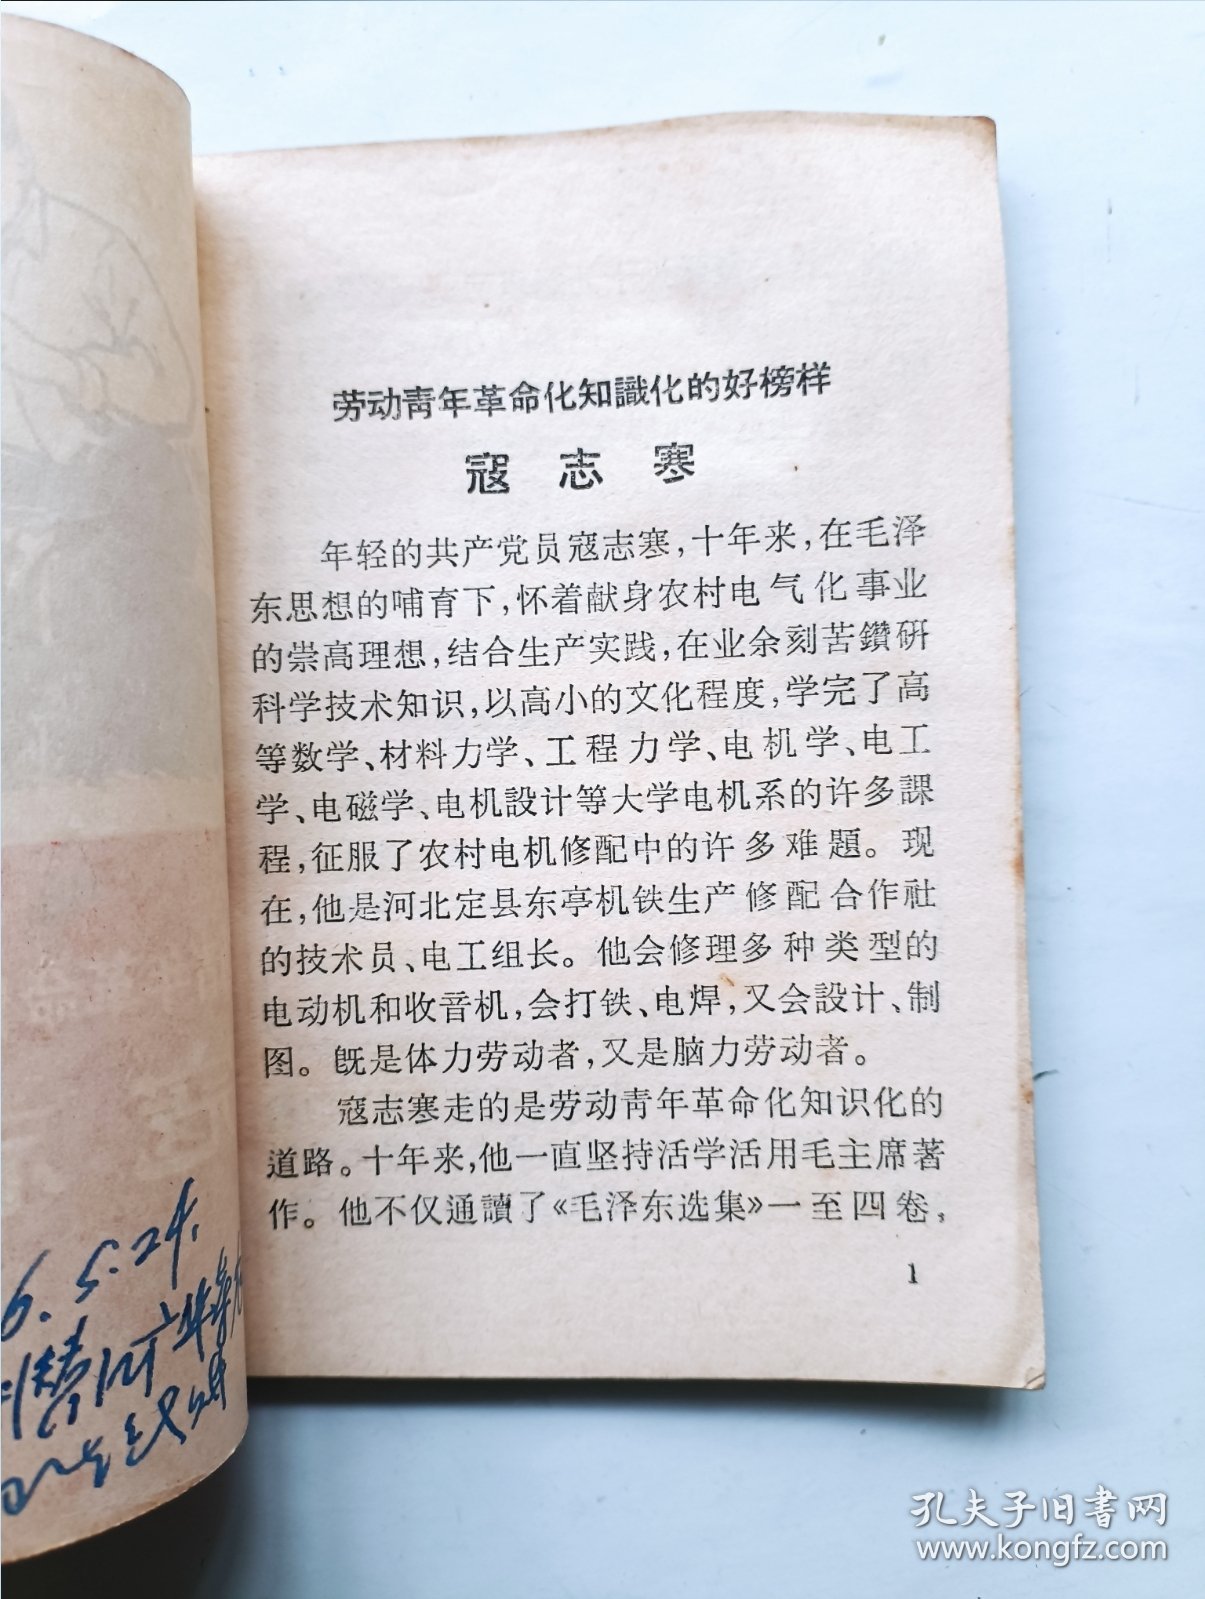 劳动青年革命化知識化的好榜样
寇志寒
年轻的共产党员寇志寒，十年来，在毛泽
东思想的哺育下，怀着献身农村电气化事业
的崇高理想，结合生产实践，在业余刻苦鑽研
科学技术知识，以高小的文化程度，学完了高
等数学、材料力学、工程力学、电机学、电工
学、电磁学、电机設计等大学电机系的许多課
程，征服了农村电机修配中的许多难題。现
在，他是河北定县东亭机铁生产修配合作社
的技术员、电工组长。他会修理多种类型的
电动机和收音机，会打铁、电焊，又会設计、制
图。既是体力劳动者，又是脑力劳动者。
寇志寒走的是劳动青年革命化知识化的
道路。十年来，他一直坚持活学活用毛主席著
作。他不仅通讀了《毛泽东选集》一至四卷，
1
6.5.24.
孔夫子旧書网
www.kongfz.com